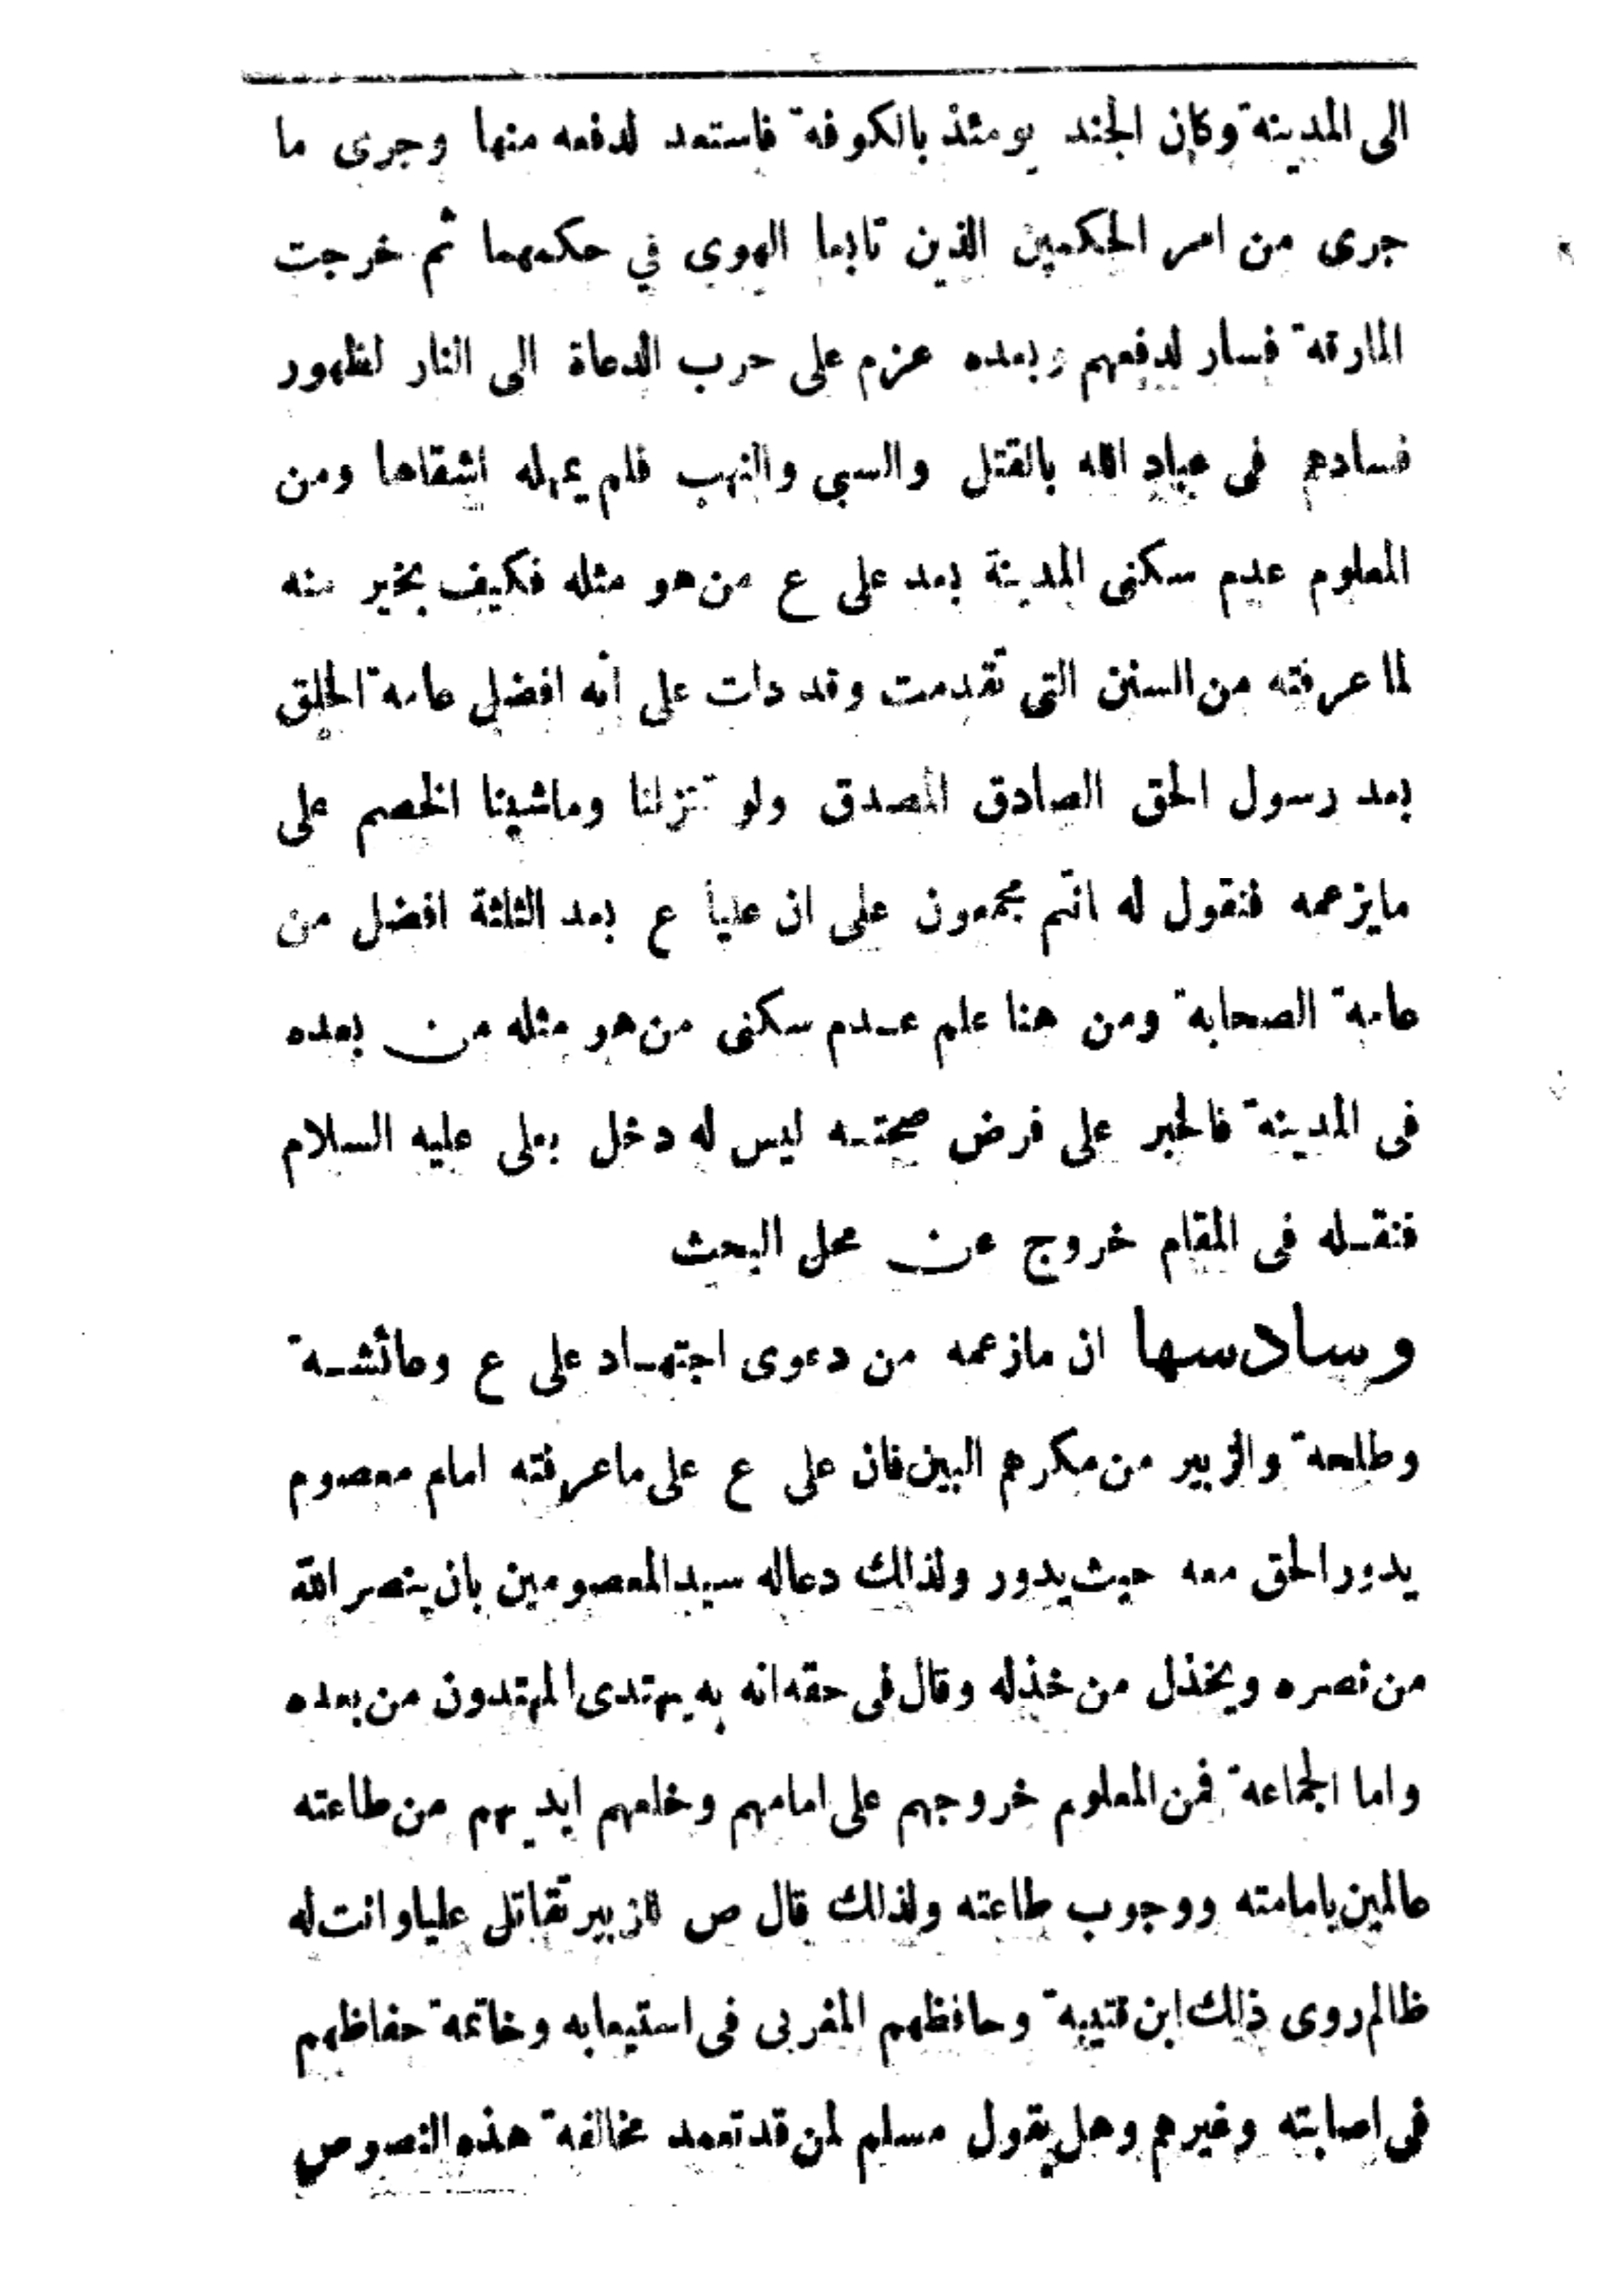 الى المدينة وكان الجند يومئذ بالكوفة فاستعد لدفعه منها وجرى ما
جرى من امر الحكمين الذين تابعا الهوى في حكمهما ثم خرجت
المارقة فسار لدفعهم وبعده عزم على حرب الدعاة الى النار لظهور
فسادهم فى عباد الله بالقتل والسبي والنهب فلم يمهله اشقاها ومن
المعلوم عدم سكنى المدينة بعد على ع من هو مثله فكيف بخير منه
لما عرفته من السنن التى تقدمت وقد دلت على انه افضل عامة الخلق
بعد رسول الحق الصادق المصدق ولو تنزلنا وماشينا الخصم على
مايزعمه فنقول له انتم مجمعون على ان علياً ع بعد الثلثة افضل من
عامة الصحابة ومن هنا علم عـدم سكنى من هو مثله من بعده
فى المدينة فالخبر على فرض صحتـه ليس له دخل بعلى عليه السلام
فنقـله فى المقام خروج عن محل البحث
وسادسها ان مازعمه من دعوى اجتهـاد على ع وعائشـة
وطلحة والزبير من مكرهم البين فان على ع على ماعرفته امام معصوم
يدور الحق معه حيث يدور ولذالك دعاله سيد المعصومين بان ينصر الله
من نصره ويخذل من خذله وقال فى حقه انه به يهتدى المهتدون من بعده
واما الجماعة فمن المعلوم خروجهم على امامهم وخلعهم ايديهم من طاعته
عالمين بامامته ووجوب طاعته ولذلك قال ص للزبير تقاتل عليا وانت له
ظالم روى ذلك ابن قتيبة وحافظهم المغربى فى استيعابه وخاتمة حفاظهم
فى اصابته وغيرهم وهل يقول مسلم لمن قد تعمد مخالفة هذه النصوص